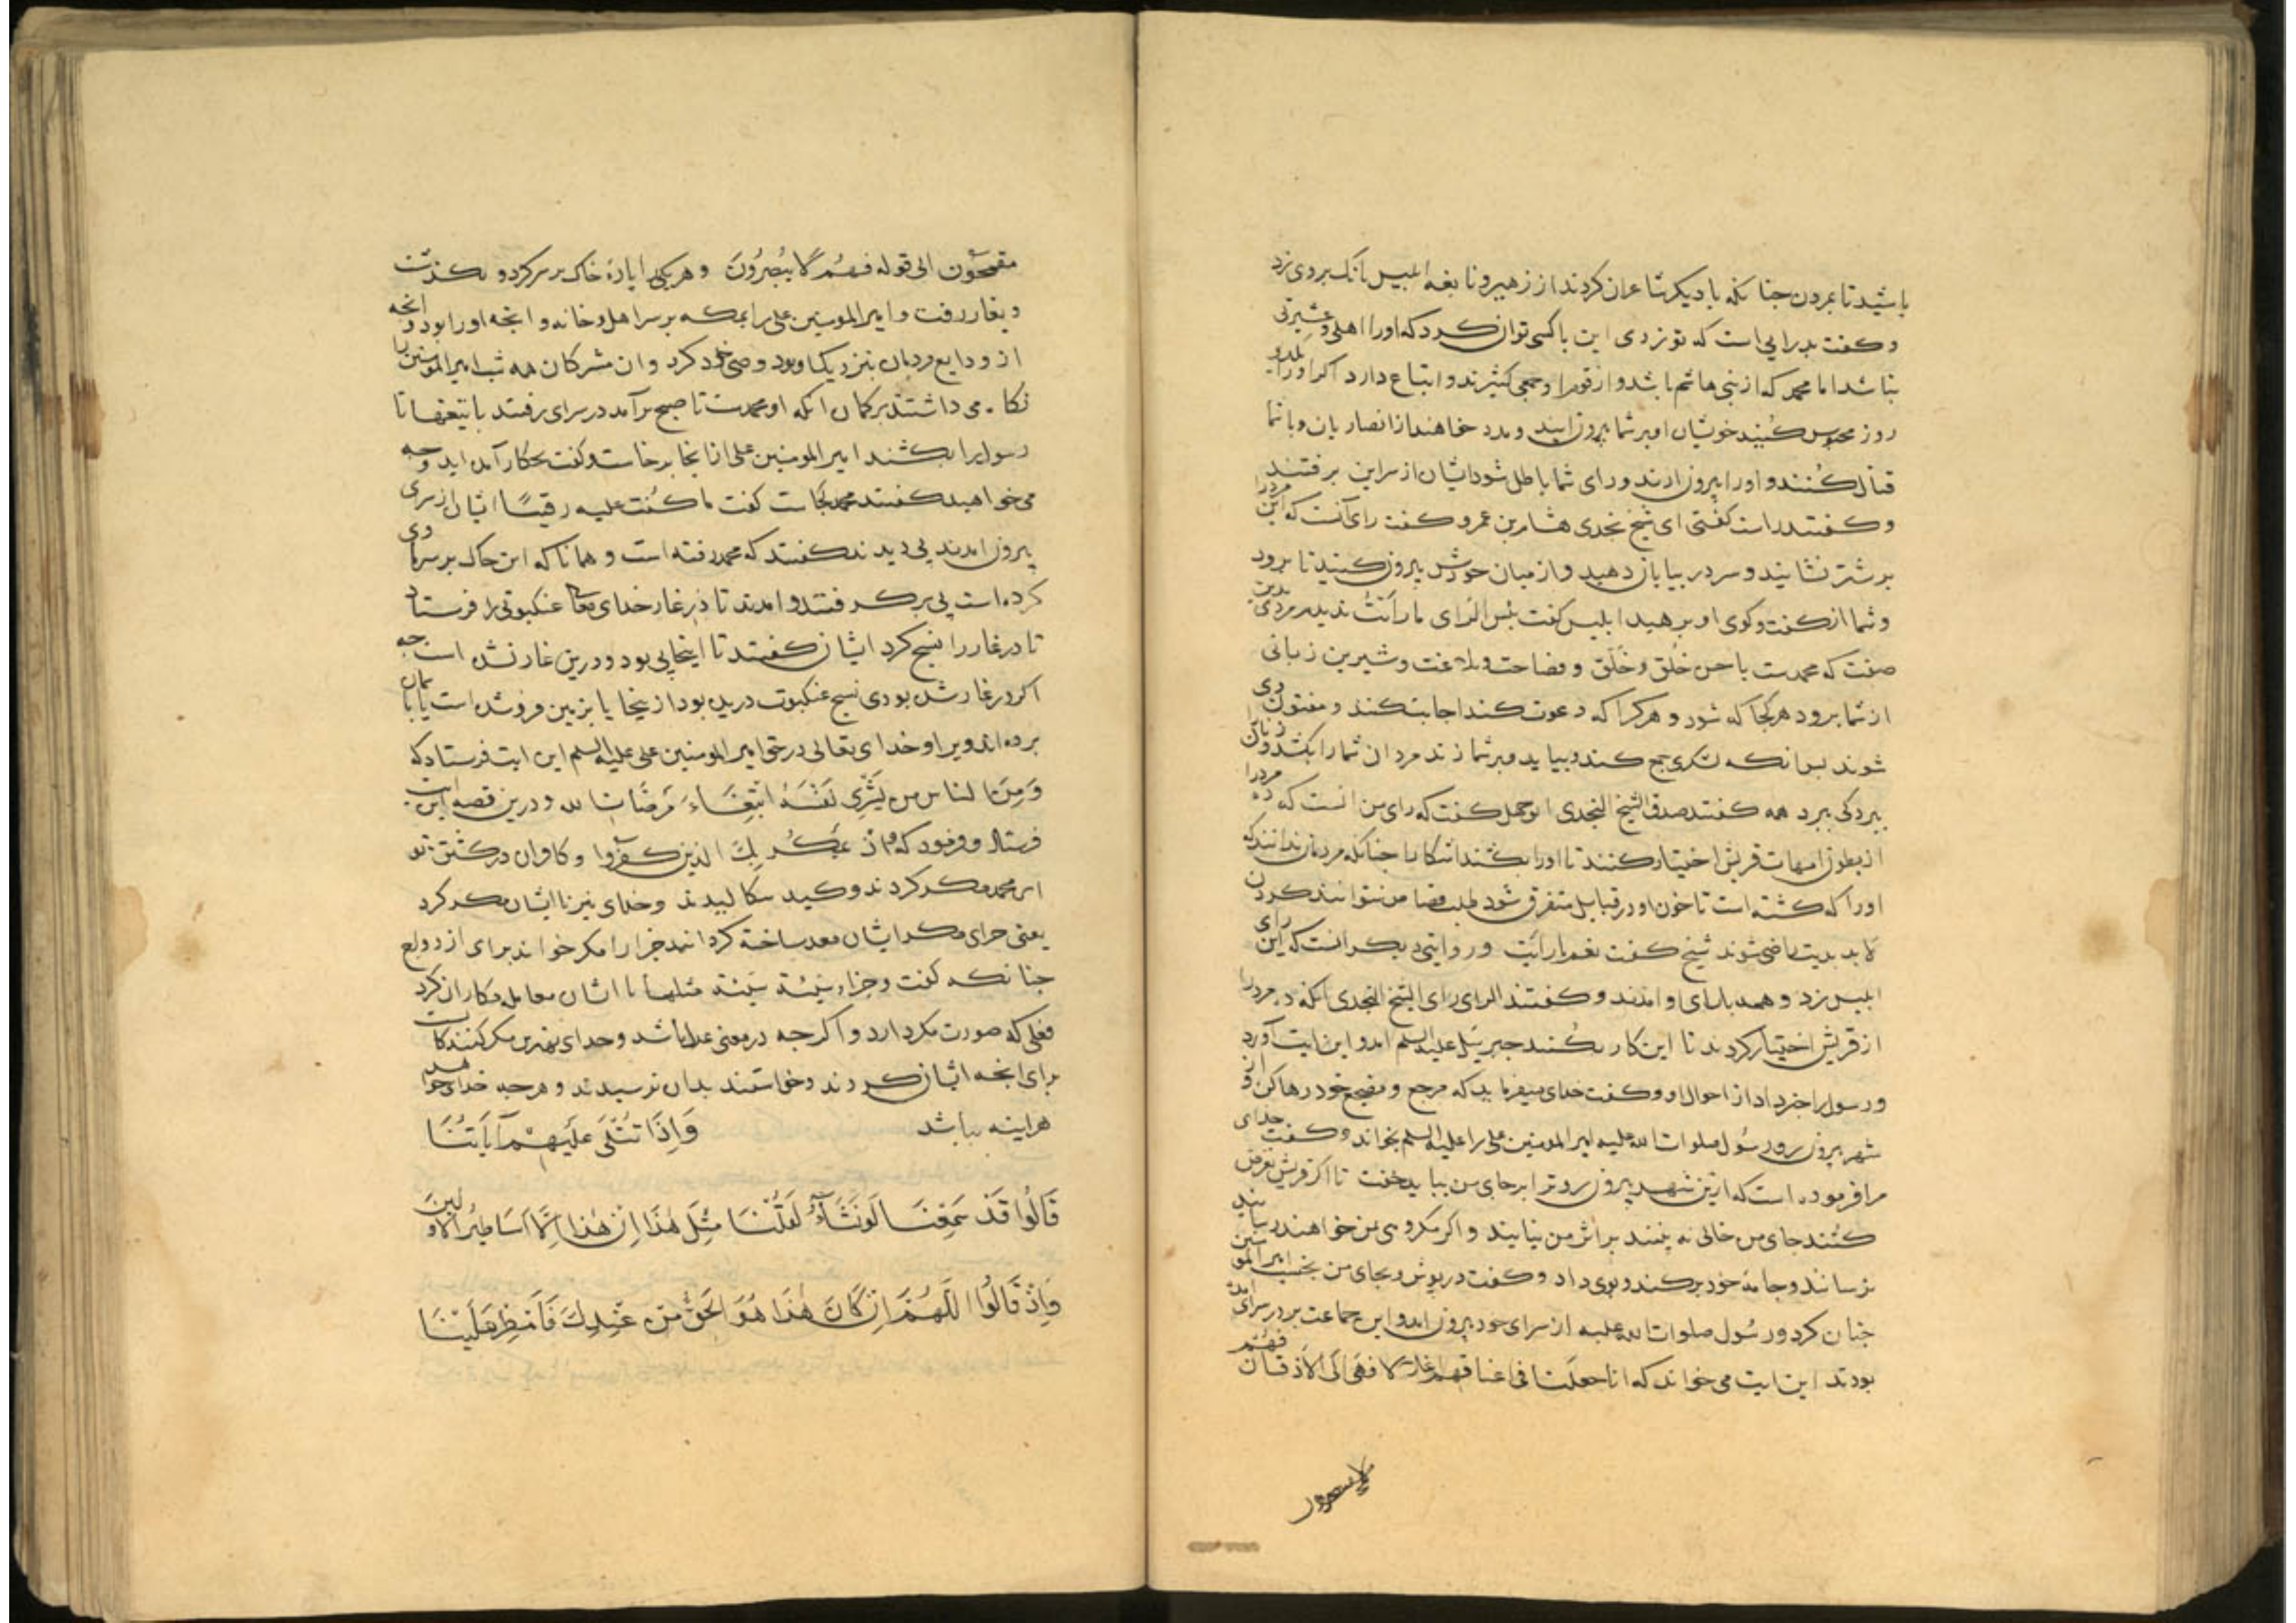 باشید تا بمردن جنانکه با دیکر شاعران کردند از زهیر و نابغه ابلیس بانک بر وی زد
و کفت بد رایی است که تو زدی این با کسی توان کرد که او را اهل و عشیرتی
نباشد اما محمد که از بنی هاشم باشد و از قوم او جمعی کثیرند و اتباع دارد اکر او را
روز محبوس کنید خویشان او بر شما بیرون ایند و مدد خواهند از انصار یان و با شما
قتال کنند و او را بیرون ارند و رای شما باطل شود ایشان از سر این برفتند
و کفتند راست کفتی ای شیخ نجدی هشام بن عمرو کفت رای آنست که این مرد را
بر شتر نشانید و سر در بیابان دهید و از میان خودش بیرون کنید تا برود
و شما از کفت و کوی او برهید ابلیس کفت بئس الرای ما رأیت بدین مردی
صفت که محمدست با حسن خُلق و خَلق و فصاحت و بلاغت و شیرین زبانی
از شما برود هر کجا که شود و هر کرا که دعوت کند اجابت کند و مفتون
شوند بس انکه لشکری جمع کند و بیاید و بر شما زند مردان شما را بکشد و زنان
ببردکی ببرد همه کفتند صدق الشیخ النجدی ابوجهل کفت که رای من انست که ده مرد را
از بطون امهات قریش اختیار کنند تا او را بکشند اشکارا جنانکه مردمان ندانند که
او را که کشته است تا خون او در قبایل متفرق شود طلب قصاص نتوانند کردن
لا بد بدیت راضی شوند شیخ کفت نعم ما رأیت و روایتی دیکر انست که این رای
ابلیس زد و همه با رای او امدند و کفتند الرای رای الشیخ النجدی انکه ده مرد را
از قریش اختیار کردند تا این کار بکنند جبرئیل علیه السلم امد و این ایت آورد
و رسول را خبر داد از احوال او و کفت خدای میفرماید که مرجع و مضجع خود رها کن و از
شهر بیرون رو رسول صلوات الله علیه امیر المومنین علی را علیه السلم بخواند و کفت خدای
مرا فرموده است که ازین شهر بیرون رو ترا بر جای من بباید خفت تا اکر قریش تفرض
کنند جای من خالی نه بینند بر اثر من نیایند و اکر مکروهی بمن خواهند رسانیدن
نرسانند و جامهٔ خود برکند و بوی داد و کفت در پوش و بجای من بخسب امیر المومنین
جنان کرد و رسول صلوات الله علیه از سرای خود بیرون امد و این جماعت بر در سرای
بودند این ایت می خواند که انا جعلنا فی اعناقهم اغلالا فهی الی الاذقان فهم
مقمحون الی قوله فهم لا یبصرون و هر یکی را پارهٔ خاک بر سر کرد و بکذشت
و بغار رفت و امیر المومنین علی را بمکه بر سر اهل و خانه و انجه او را بود و انجه
از ودایع مردمان بنزدیک او بود وصی خود کرد و ان مشرکان همه شب امیر المومنین را
نکاه می داشتند بر کمان انکه او محمدست تا صبح بر آمد در سرای رفتند با تیغها تا
رسول را بکشند امیر المومنین علی از انجا برخاست و کفت بحکار آمده اید و جه
می خواهید کفتند محمد کجاست کفت ما کنت علیه رقیبًا ایشان از سرای
بیرون امدند پی دیدند کفتند که محمد رفته است و همانا که این خاک بر سر ما وی
کرده است پی بر کرفتند و امدند تا در غار خدای تعالی عنکبوتی را فرستاد
تا در غار را نسج کرد ایشان کفتند تا اینجا پی بود و درین غار نشده است جه
اکر در غار شده بودی نسج عنکبوت دریده بود از ینجا یا بزمین فرو شده است یا باسمان
برده اند ویرا و خدای تعالی در حق امیر المومنین علی علیه السلم این ایت فرستاد که
وَمِنَ الناس من یَشْرِی نَفْسَهُ ابْتِغَاءَ مَرْضَاتِ الله و درین قصه این ایت
فرستاد و فرمود که و اذ یمکر بک الذین کفروا و کافران در کشتن تو
ای محمد مکر کردند و کید سکالیدند و خدای نیز با ایشان مکر کرد
یعنی جزای مکر ایشان معد ساخته کرد انید جزا را مکر خواند برای ازدواج
جنانکه کفت و جزاء سیئة سیئة مثلها با ایشان معامله مکاران کرد
فعلی که صورت مکر دارد و اکر جه در معنی عدل باشد و خدای بهترین مکر کنندکانست
برای انجه ایشان کردند و خواستند بدان نرسیدند و هر جه خدای خواهد
هراینه بباشد وَاِذَا تُتْلَی عَلَیْهِمْ آیَاتُنَا
قَالُوا قَدْ سَمِعْنَا لَوْ نَشَآءُ لَقُلْنَا مِثْلَ هٰذَا اِنْ هٰذَا اِلَّا اَسَاطِیرُ الْاَوَّلِینَ
وَاِذْ قَالُوا اللَّهُمَّ اِنْ کَانَ هٰذَا هُوَ الْحَقَّ مِنْ عِنْدِکَ فَاَمْطِرْ عَلَیْنَا